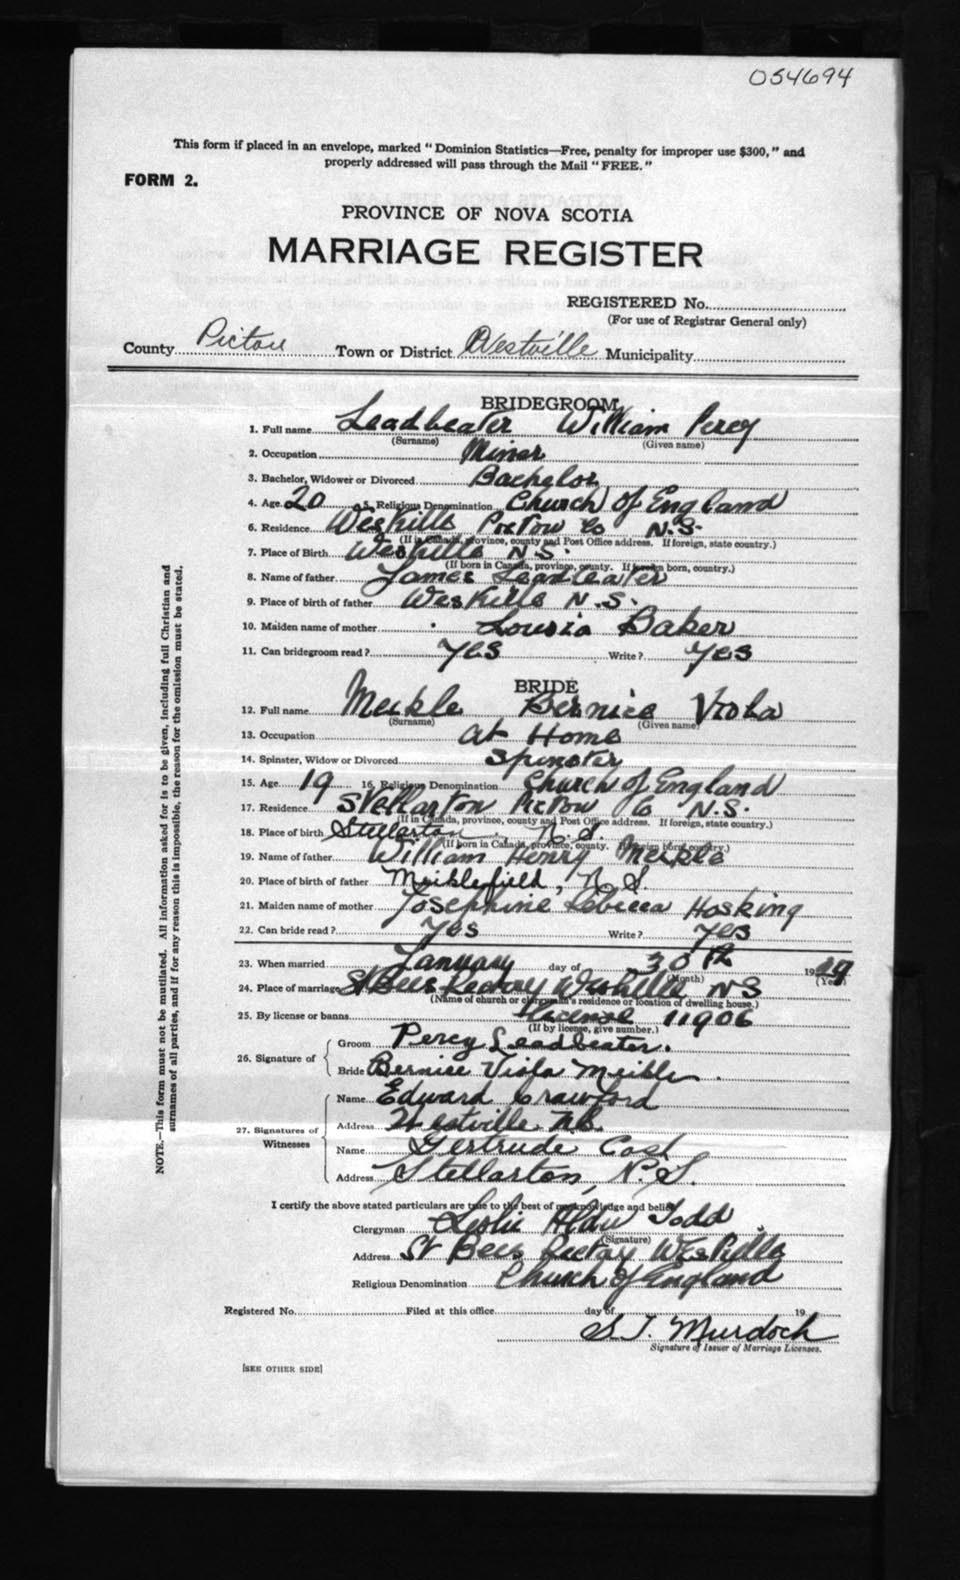 054694
This form if placed in an envelope, marked "Dominion Statistics—Free, penalty for improper use $300," and
properly addressed will pass through the Mail "FREE."
FORM 2.
PROVINCE OF NOVA SCOTIA
MARRIAGE REGISTER
REGISTERED No.
(For use of Registrar General only)
County Pictou Town or District Westville Municipality
BRIDEGROOM
1. Full name Leadbeater William Percy
(Surname) (Given name)
2. Occupation Miner
3. Bachelor, Widower or Divorced Bachelor
4. Age 20 5. Religious Denomination Church of England
6. Residence Westville Pictou Co N.S.
(If in Canada, province, county and Post Office address. If foreign, state country.)
7. Place of Birth Westville N.S.
(If born in Canada, province, county. If foreign born, country.)
8. Name of father James Leadbeater
9. Place of birth of father Westville N.S.
10. Maiden name of mother Lousia Baker
11. Can bridegroom read? Yes Write? Yes
BRIDE
12. Full name Meikle Bernice Viola
(Surname) (Given name)
13. Occupation At Home
14. Spinster, Widow or Divorced Spinster
15. Age 19 16. Religious Denomination Church of England
17. Residence Stellarton Pictow Co N.S.
(If in Canada, province, county and Post Office address. If foreign, state country.)
18. Place of birth Stellarton, N.S.
(If born in Canada, province, county. If foreign born, country.)
19. Name of father William Henry Meikle
20. Place of birth of father Meiklefield, N.S.
21. Maiden name of mother Josephine Rebecca Hosking
22. Can bride read? Yes Write? Yes
23. When married January day of 30th 19
(Month) (Year)
24. Place of marriage St Bees Rectory Westville NS
(Name of church or clergyman's residence or location of dwelling house.)
25. By license or banns License 11906
(If by license, give number.)
26. Signature of Groom Percy Leadbeater.
Bride Bernice Viola Meikle.
27. Signatures of Witnesses Name Edward Crawford
Address Westville N.S.
Name Gertrude
Address Stellarton, N.S.
I certify the above stated particulars are true to the best of my knowledge and belief.
Clergyman Leslie Todd
(Signature)
Address St Bees Rectory Westville
Religious Denomination Church of England
Registered No. Filed at this office day of 19
S.T. Murdoch
Signature of Issuer of Marriage Licenses.
[SEE OTHER SIDE]
NOTE.—This form must not be mutilated. All information asked for is to be given, including full Christian and
surnames of all parties, and if for any reason this is impossible, the reason for the omission must be stated.